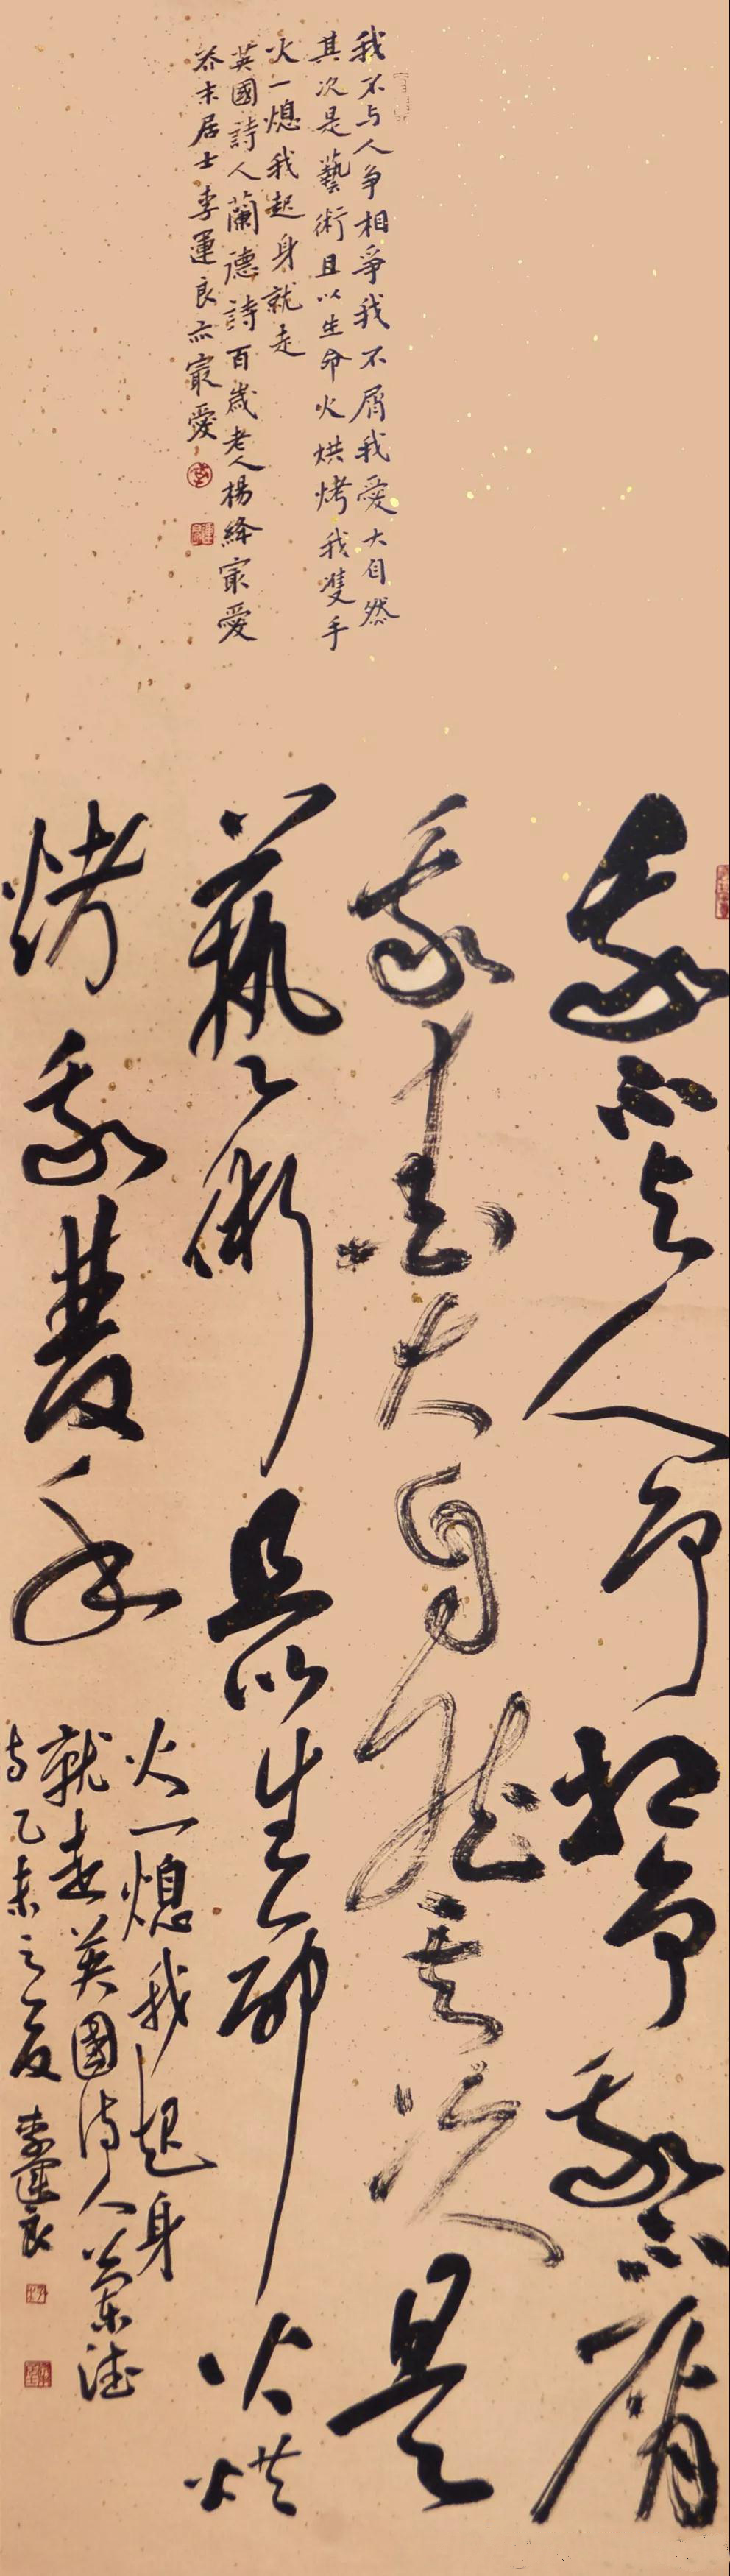 我不与人争相爭我不屑我愛大自然
其次是藝術且以生命火烘烤我雙手
火一熄我起身就走
英國詩人蘭德詩百歲老人楊絳㝡愛
芥末居士李運良亦㝡愛
我不与人争相争我不屑
我愛大自然其次是
藝術且以生命火烘
烤我雙手
火一熄我起身
就走英國诗人蘭德
诗乙未之夏李運良